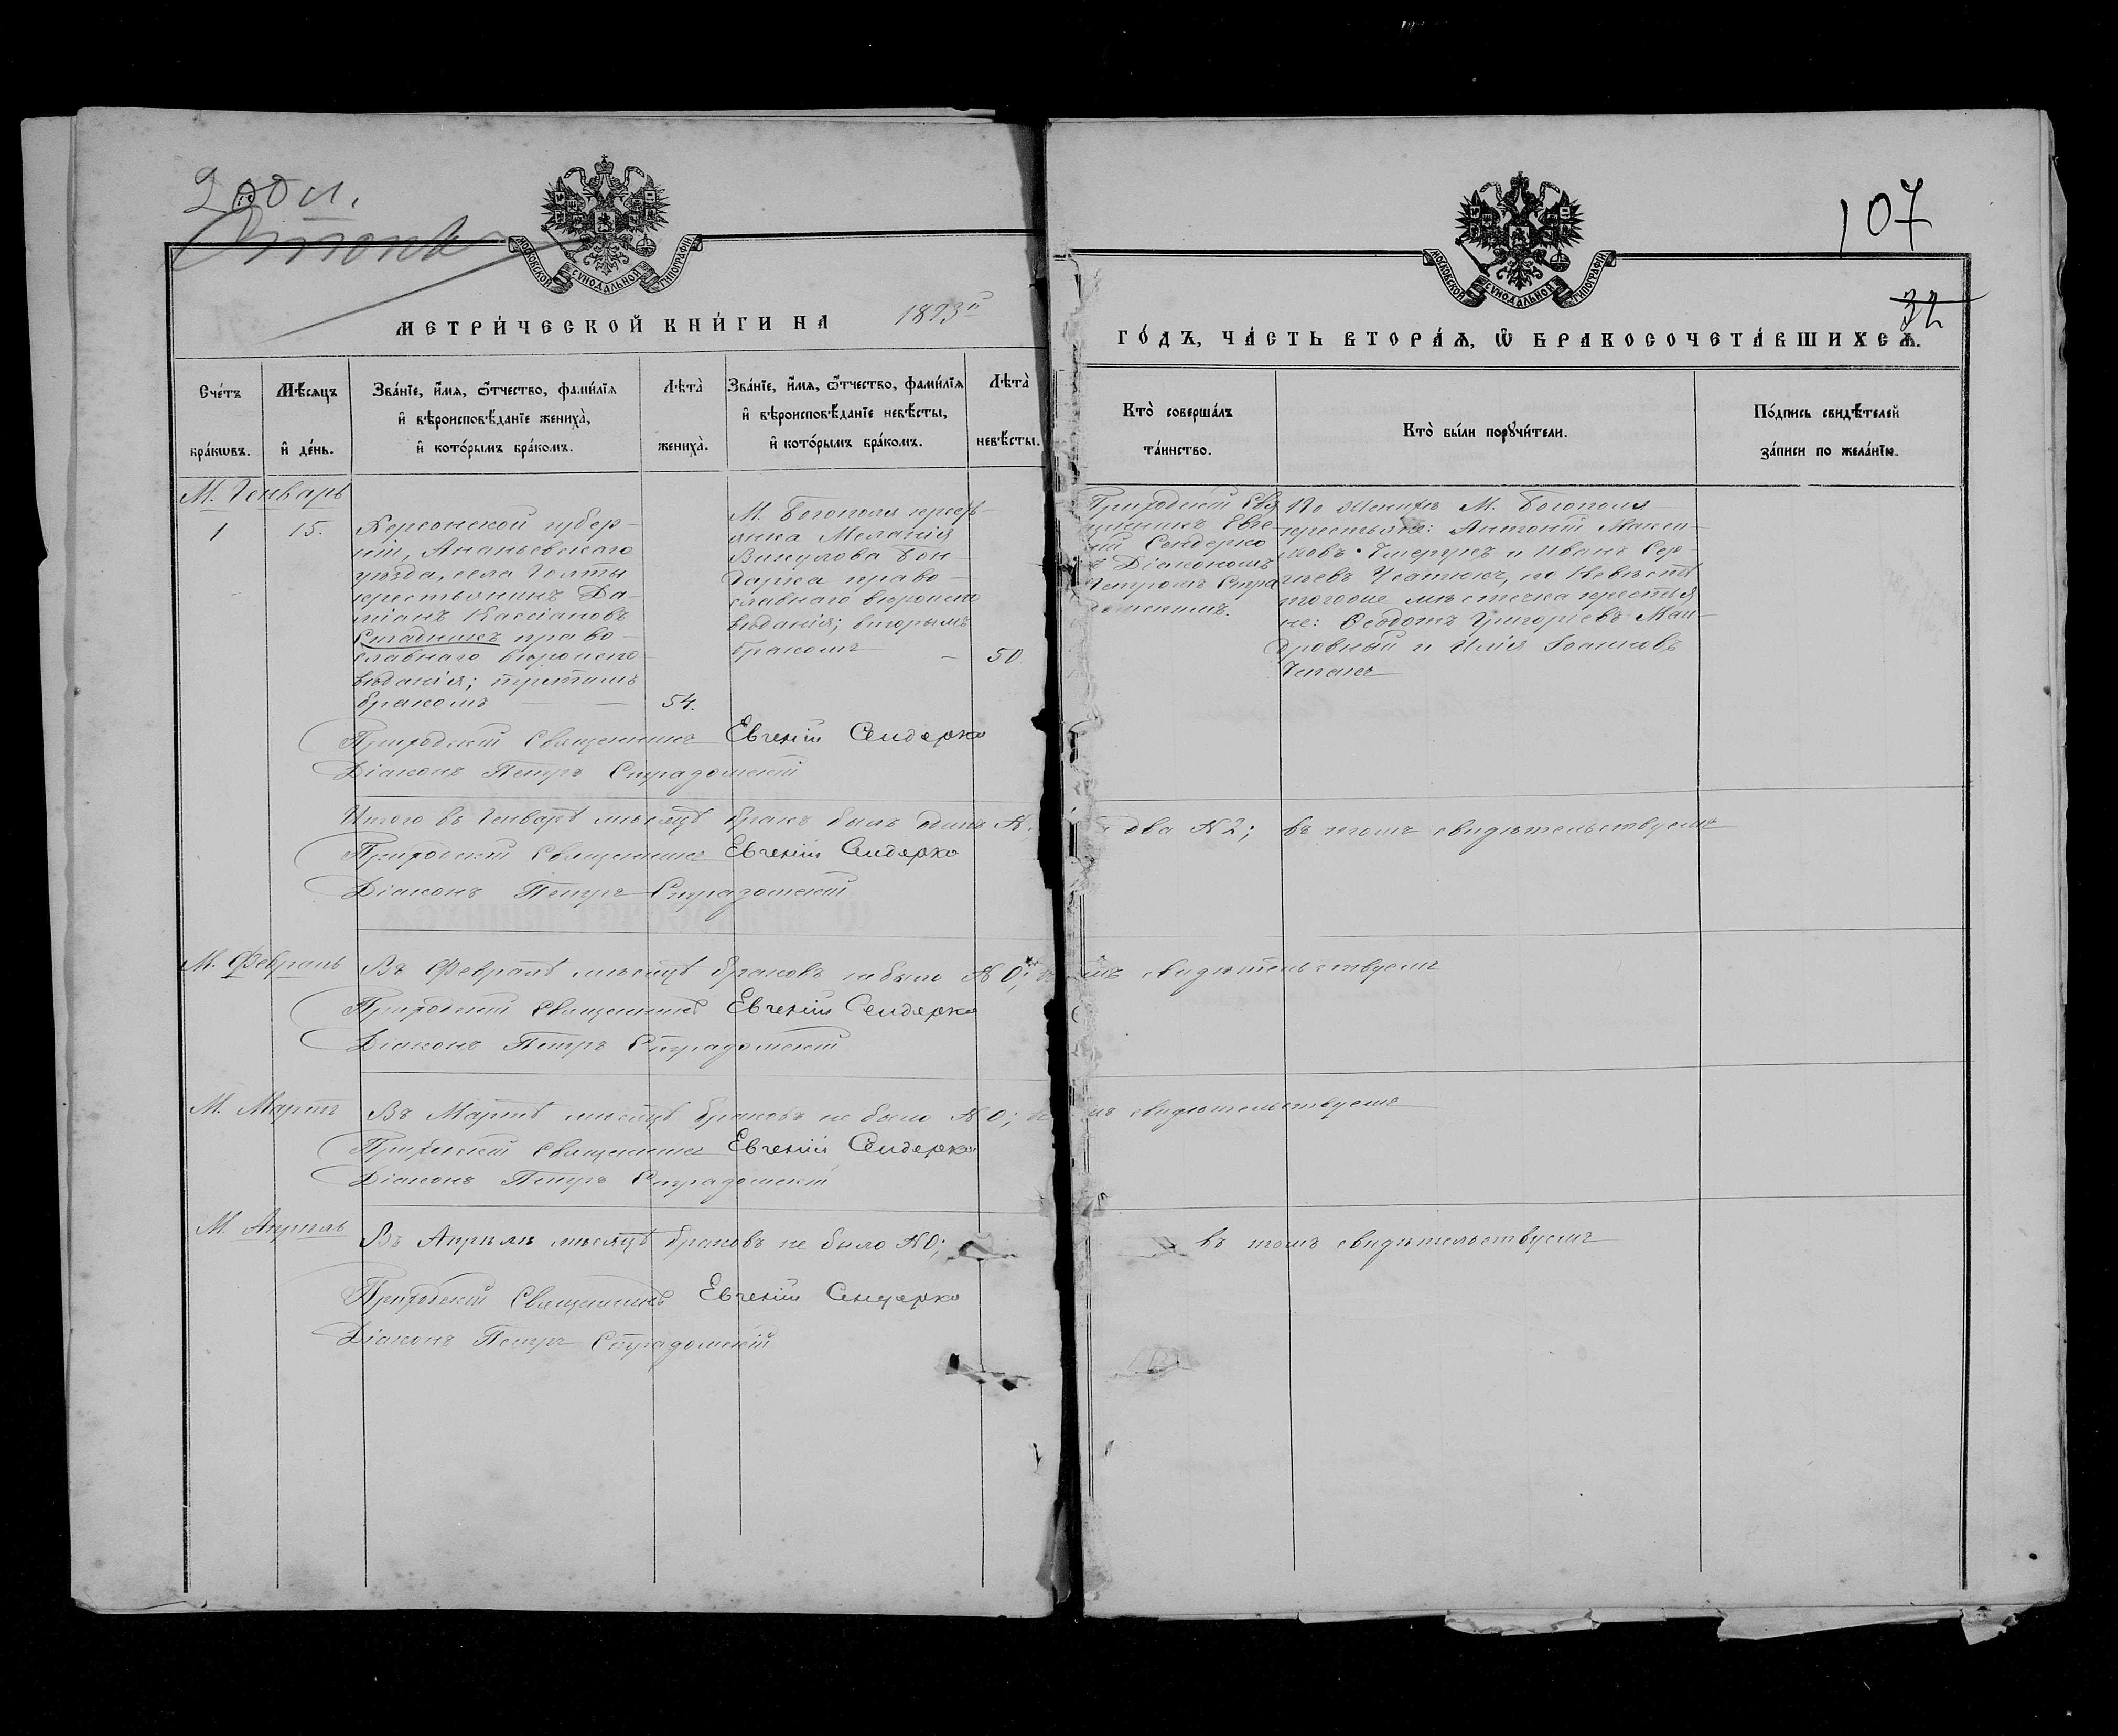 200 и.
107
32
МОСКОВСКОЙ СѴНОДАЛЬНОЙ ТИПОГРАФІИ
МОСКОВСКОЙ СѴНОДАЛЬНОЙ ТИПОГРАФІИ
МЕТРИ́ЧЕСКОЙ КНИ́ГИ НА 1893й
ГО́ДЪ, ЧА́СТЬ ВТОРА́Ѧ, Ѿ БРАКОСОЧЕТА́ВШИХСѦ.
Сче́тъ бра́кѡвъ.
Мѣ́сяцъ и҆ де́нь.
Зва́нїе, и҆́мѧ, ѻ҆́тчество, фами́лїѧ
и҆ вѣроисповѣ́данїе жениха̀,
и҆ кото́рымъ бра́комъ.
Лѣ́та жениха̀.
Зва́нїе, и҆́мѧ, ѻ҆́тчество, фами́лїѧ
и҆ вѣроисповѣ́данїе невѣ́сты,
и҆ кото́рымъ бра́комъ.
Лѣ́та невѣ́сты.
Кто̀ соверша́лъ
та́инство.
Кто̀ бы́ли порꙋчи́тели.
По́дпись свидѣ́телей
за́писи по жела́нїю.
М. Генварь
1
15.
Херсонской губер-
ніи, Ананьевскаго
уѣзда, села Голты
крестьянинъ Да-
міанъ Кассіановъ
Стадникъ право-
славнаго вѣроиспо-
вѣданія; третимъ
бракомъ
54.
М. Богополя кресть-
янка Меланія
Викулова Бон-
дарка право-
славнаго вѣроиспо
вѣданія; вторымъ
бракомъ
50
Приходскій Свя
щенникъ Евге
ній Сендерко
Діакономъ
Петромъ Стра
домскимъ.
По Женихѣ М. Богополя
крестьяне: Антоній Макси-
мовъ и Иванъ Сер-
гѣевъ по Невѣстѣ
тогоже мѣстечка крестья
не: Ѳеодотъ Григоріевъ Ман-
дровный и Илія Іоанновъ
Приходскій Священникъ Евгеній Сендерко
Діаконъ Петръ Страдомскій
Итого въ Генварѣ мѣсяцѣ бракъ былъ одинъ два №2; въ томъ свидѣтельствуемъ
Приходскій Священникъ Евгеній Сендерко
Діаконъ Петръ Страдомскій
М. Февраль
Въ Февралѣ мѣсяцѣ браковъ небыло №0; свидѣтельствуемъ
Приходскій Священникъ Евгеній Сендерко
Діаконъ Петръ Страдомскій
М. Мартъ
Въ Мартѣ мѣсяцѣ браковъ не было №0; свидѣтельствуемъ
Приходскій Священникъ Евгеній Сендерко
Діаконъ Петръ Страдомскій
М. Апрѣль
Въ Апрѣлѣ мѣсяцѣ браковъ не было №0; въ томъ свидѣтельствуемъ
Приходскій Священникъ Евгеній Сендерко
Діаконъ Петръ Страдомскій